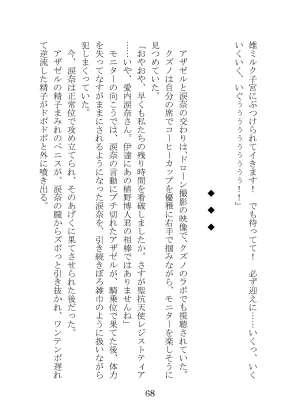 雄ミルク子宮にぶつけられてイきます！　でも待ってて！　必ず迎えに……いくっ、いく
いくいく、いぐぅぅぅぅぅぅぅ！！」
◆　◆　◆
アザゼルと涙奈の交わりは、ドローン撮影の映像で、クズノのラボでも視聴されていた。
クズノは自分の席でコーヒーカップを優雅に右手で掴みながら、モニターを楽しそうに
見つめていた。
「おやおや、早くも私たちの残り時間を看破しましたか。さすが聖抗天使レジスティア
……いや、愛内涙奈さん。伊達にあの植野博人君の相棒ではありませんね」
モニターの向こうでは、涙奈の言動にブチ切れたアザゼルが、騎乗位で果てた後、体力
を使い果たすがままにされるようになった涙奈を、引き続きぼろ雑巾のように扱いながら
犯しまくっていた。
今、涙奈は正常位で攻め立てられ、そのあげくに果てさせられた後だった。
アザゼルの精子まみれのペニスが、涙奈の膣からズボっと引き抜かれ、ワンテンポ遅れ
て逆流した精子がドボドボと外に噴き出る。
68